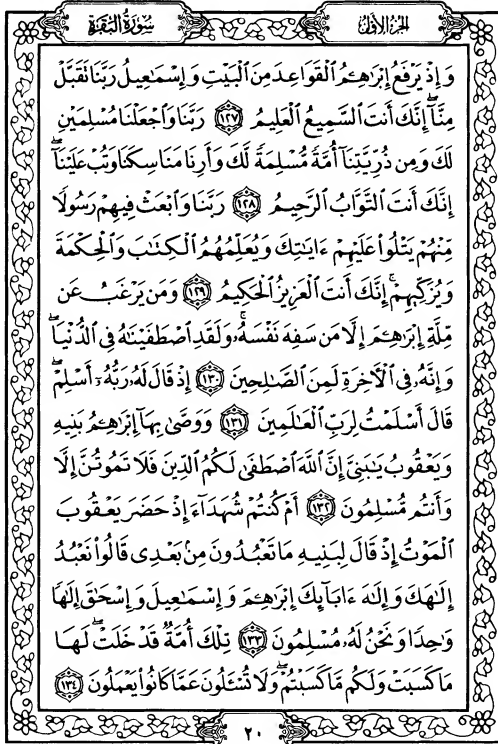 سُورَةُ البَقَرَةِ
الجُزءُ الأَوَّلُ
وَإِذۡ يَرۡفَعُ إِبۡرَٰهِـۧمُ ٱلۡقَوَاعِدَ مِنَ ٱلۡبَيۡتِ وَإِسۡمَٰعِيلُ رَبَّنَا تَقَبَّلۡ
مِنَّآۖ إِنَّكَ أَنتَ ٱلسَّمِيعُ ٱلۡعَلِيمُ ١٢٧ رَبَّنَا وَٱجۡعَلۡنَا مُسۡلِمَيۡنِ
لَكَ وَمِن ذُرِّيَّتِنَآ أُمَّةٗ مُّسۡلِمَةٗ لَّكَ وَأَرِنَا مَنَاسِكَنَا وَتُبۡ عَلَيۡنَآۖ
إِنَّكَ أَنتَ ٱلتَّوَّابُ ٱلرَّحِيمُ ١٢٨ رَبَّنَا وَٱبۡعَثۡ فِيهِمۡ رَسُولٗا
مِّنۡهُمۡ يَتۡلُواْ عَلَيۡهِمۡ ءَايَٰتِكَ وَيُعَلِّمُهُمُ ٱلۡكِتَٰبَ وَٱلۡحِكۡمَةَ
وَيُزَكِّيهِمۡۚ إِنَّكَ أَنتَ ٱلۡعَزِيزُ ٱلۡحَكِيمُ ١٢٩ وَمَن يَرۡغَبُ عَن
مِّلَّةِ إِبۡرَٰهِـۧمَ إِلَّا مَن سَفِهَ نَفۡسَهُۥۚ وَلَقَدِ ٱصۡطَفَيۡنَٰهُ فِي ٱلدُّنۡيَاۖ
وَإِنَّهُۥ فِي ٱلۡأٓخِرَةِ لَمِنَ ٱلصَّٰلِحِينَ ١٣٠ إِذۡ قَالَ لَهُۥ رَبُّهُۥٓ أَسۡلِمۡۖ
قَالَ أَسۡلَمۡتُ لِرَبِّ ٱلۡعَٰلَمِينَ ١٣١ وَوَصَّىٰ بِهَآ إِبۡرَٰهِـۧمُ بَنِيهِ
وَيَعۡقُوبُ يَٰبَنِيَّ إِنَّ ٱللَّهَ ٱصۡطَفَىٰ لَكُمُ ٱلدِّينَ فَلَا تَمُوتُنَّ إِلَّا
وَأَنتُم مُّسۡلِمُونَ ١٣٢ أَمۡ كُنتُمۡ شُهَدَآءَ إِذۡ حَضَرَ يَعۡقُوبَ
ٱلۡمَوۡتُ إِذۡ قَالَ لِبَنِيهِ مَا تَعۡبُدُونَ مِنۢ بَعۡدِي قَالُواْ نَعۡبُدُ
إِلَٰهَكَ وَإِلَٰهَ ءَابَآئِكَ إِبۡرَٰهِـۧمَ وَإِسۡمَٰعِيلَ وَإِسۡحَٰقَ إِلَٰهٗا
وَٰحِدٗا وَنَحۡنُ لَهُۥ مُسۡلِمُونَ ١٣٣ تِلۡكَ أُمَّةٞ قَدۡ خَلَتۡۖ لَهَا
مَا كَسَبَتۡ وَلَكُم مَّا كَسَبۡتُمۡۖ وَلَا تُسۡـَٔلُونَ عَمَّا كَانُواْ يَعۡمَلُونَ ١٣٤
٢٠